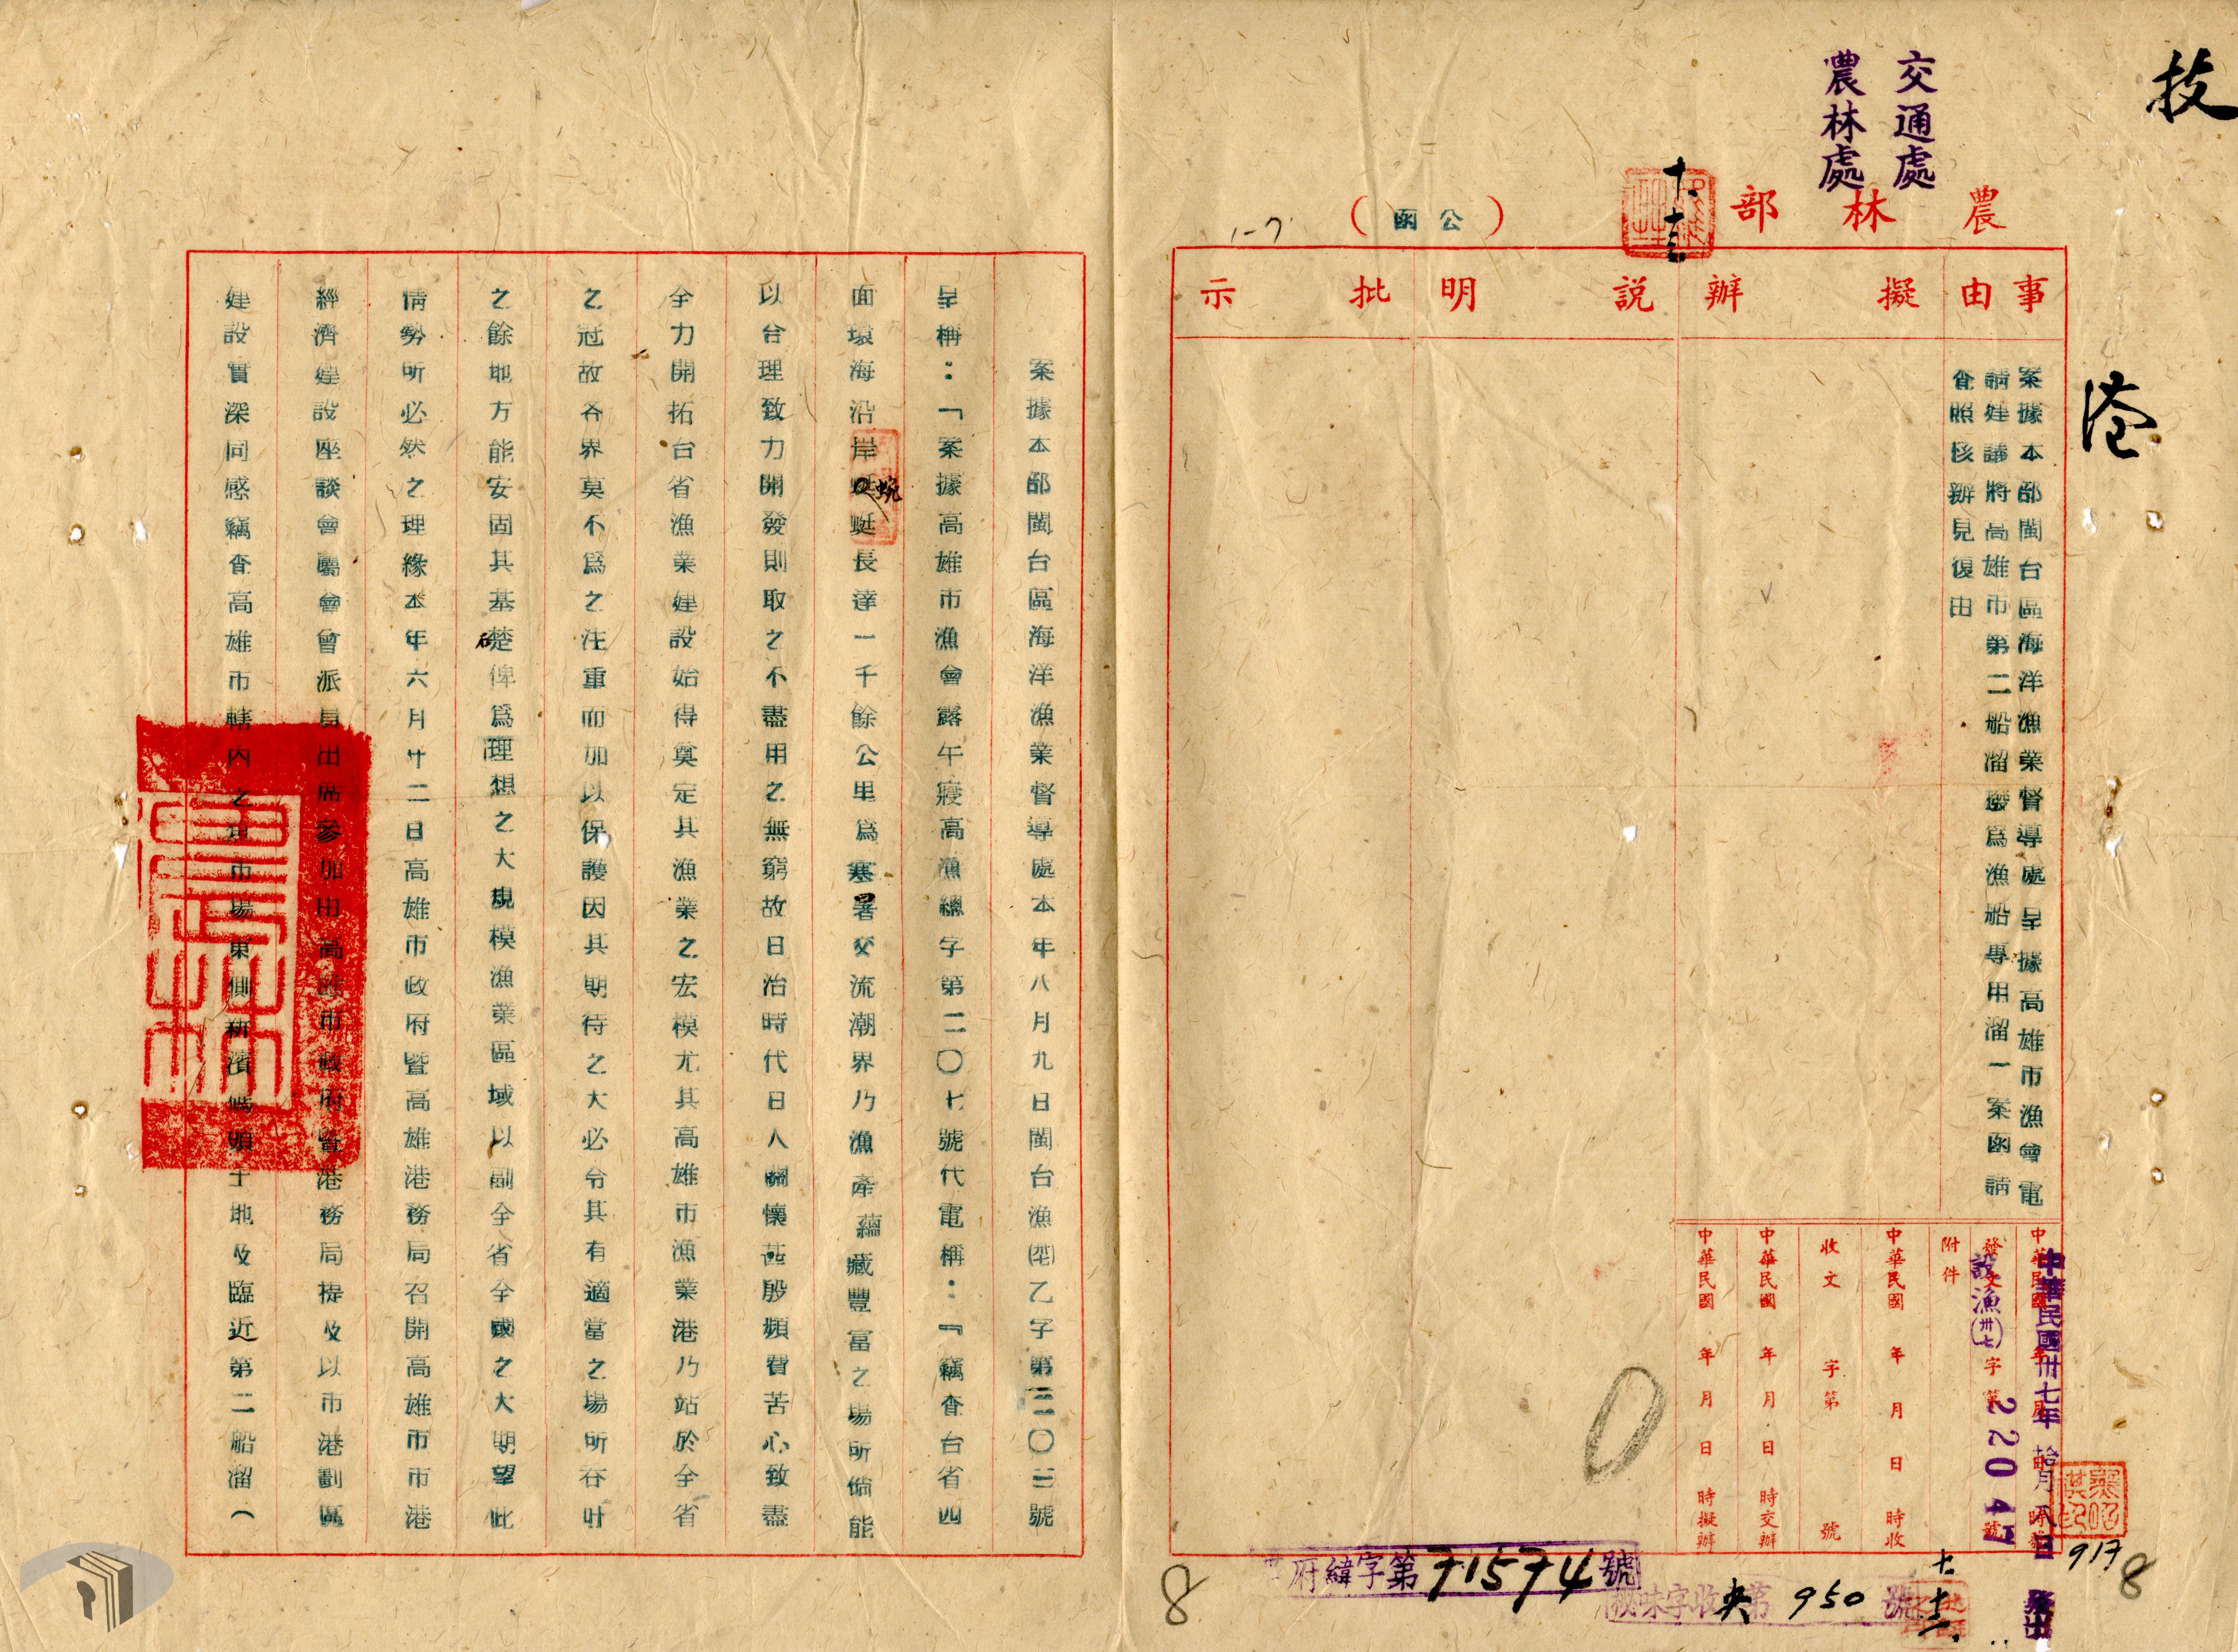 技
港
交通處
農林處
農林部
(公函)
十、十三
事由
擬辦
說明
批示
案據本部閩台區海洋漁業督導處呈據高雄市漁會電
請建議將高雄市第二船溜撥為漁船專用溜一案函請
查照核辦見復由
中華民國卅七年拾月八日發出
發文設漁(卅七)字第22047號
附件
中華民國年月日時收
收文字第號
中華民國年月日時交辦
中華民國年月日時擬辦
917
8
府緯字第71574號
秘味字收央第950號
8
案據本部閩台區海洋漁業督導處本年八月九日閩台漁乙字第三〇三號
呈稱：「案據高雄市漁會露午寢高漁總字第二〇七號代電稱：『竊查台省四
面環海沿岸蜿蜒長達一千餘公里為寒暑交流潮界乃漁產蘊藏豐富之場所倘能
以合理致力開發則取之不盡用之無窮故日治時代日人關懷甚殷頻費苦心致盡
全力開拓台省漁業建設始得奠定其漁業之宏模尤其高雄市漁業港乃站於全省
之冠故各界莫不為之注重而加以保護因其期待之大必令其有適當之場所吞吐
之餘地方能安固其基礎俾為理想之大規模漁業區域以副全省全國之大期望此
情勢所必然之理緣本年六月廿二日高雄市政府暨高雄港務局召開高雄市市港
經濟建設座談會屬會曾派員出席參加由高雄市政府暨港務局提及以市港劃區
建設實深同感竊查高雄市轄內之魚市場東側新濱碼頭土地及臨近第二船溜（